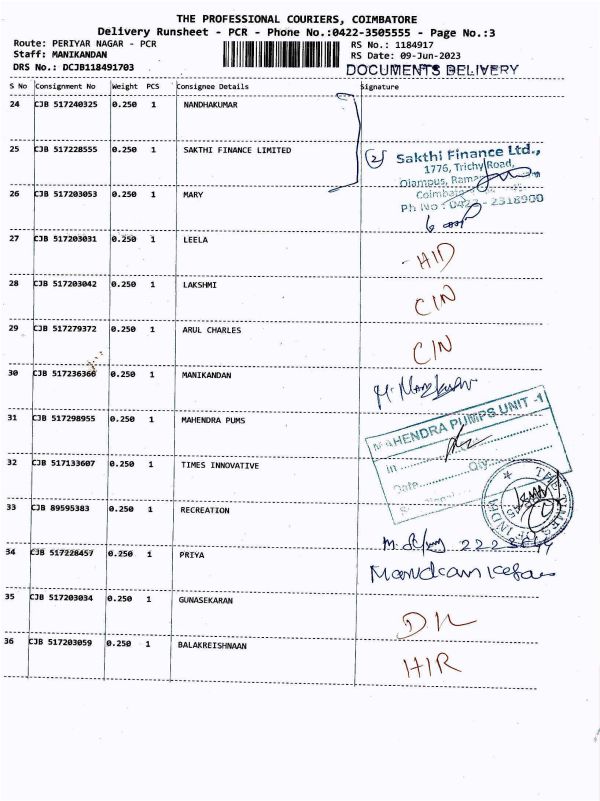 THE PROFESSIONAL COURIERS, COIMBATORE
Delivery Runsheet - PCR - Phone No.:0422-3505555 - Page No.:3
Route: PERIYAR NAGAR - PCR
RS No.: 1184917
Staff: MANIKANDAN
RS Date: 09-Jun-2023
DRS No.: DCJB118491703
DOCUMENTS DELIVERY
S No Consignment No Weight PCS Consignee Details Signature
24 CJB 517240325 0.250 1 NANDHAKUMAR
25 CJB 517228555 0.250 1 SAKTHI FINANCE LIMITED
(2) Sakthi Finance Ltd.,
1776, Trichy Road,
Olampus,
26 CJB 517203053 0.250 1 MARY
Ph No : 0422 - 2318900
27 CJB 517203031 0.250 1 LEELA
- HID
28 CJB 517203042 0.250 1 LAKSHMI
CIN
29 CJB 517279372 0.250 1 ARUL CHARLES
CIN
30 CJB 517236366 0.250 1 MANIKANDAN
31 CJB 517298955 1 MAHENDRA PUMS
MAHENDRA PUMPS UNIT -1
In
Qty
Date
32 CJB 517133607 0.250 1 TIMES INNOVATIVE
33 CJB 89595383 0.250 1 RECREATION
34 CJB 517228457 0.250 1 PRIYA
35 CJB 517203034 0.250 1 GUNASEKARAN
DIL
36 CJB 517203059 0.250 1 BALAKREISHNAAN
HIR